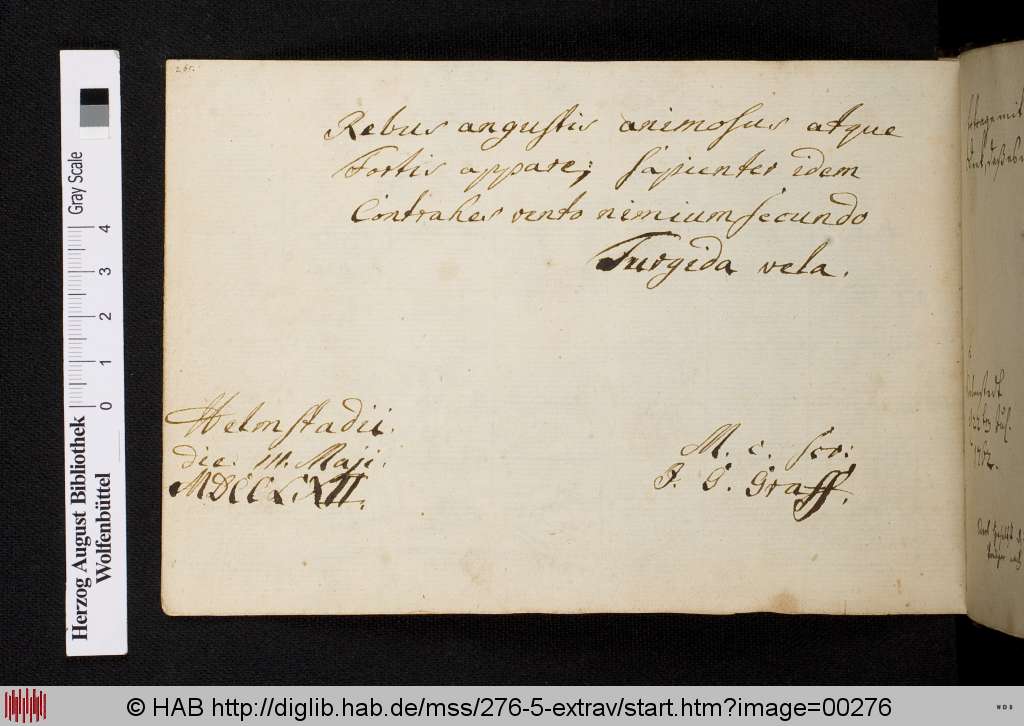 265.
Rebus angustis animosus atque
Fortis appare; sapienter idem
Contrahes vento nimium secundo
Turgida vela.
Helmstadii.
die. III. Maji.
MDCCLXII.
M. c. scr:
J. G. Graff.
Helmstedt
1762.
Herzog August Bibliothek
Wolfenbüttel
Gray Scale
0 1 2 3 4
© HAB http://diglib.hab.de/mss/276-5-extrav/start.htm?image=00276
WDB